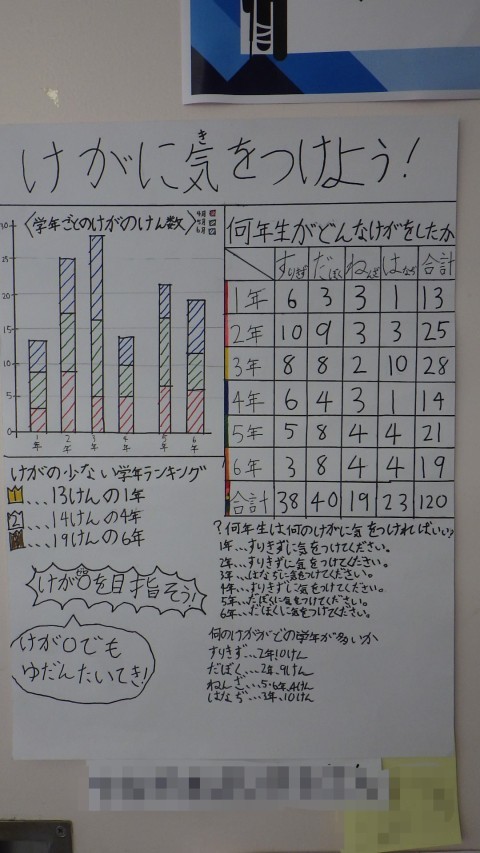 けがに気をつけよう!
き
〈学年ごとのけがのけん数〉
4月
5月
6月
30
25
20
15
10
5
0
1年 2年 3年 4年 5年 6年
何年生がどんなけがをしたか
すりきず だぼく ねんざ はなぢ 合計
1年 6 3 3 1 13
2年 10 9 3 3 25
3年 8 8 2 10 28
4年 6 4 3 1 14
5年 5 8 4 4 21
6年 3 8 4 4 19
合計 38 40 19 23 120
けがの少ない学年ランキング
1...13けんの1年
2...14けんの4年
...19けんの6年
けが0を目指そう!
けが0でも
ゆだんたいてき!
?何年生は何のけがに気をつければいい?
1年...すりきずに気をつけてください。
2年...すりきずに気をつけてください。
3年...はなぢに気をつけてください。
4年...すりきずに気をつけてください。
5年...だぼくに気をつけてください。
6年...だぼくに気をつけてください。
何のけががどの学年が多いか
すりきず...2年、10けん
だぼく...2年、9けん
ねんざ...5・6年、4けん
はなぢ...3年、10けん